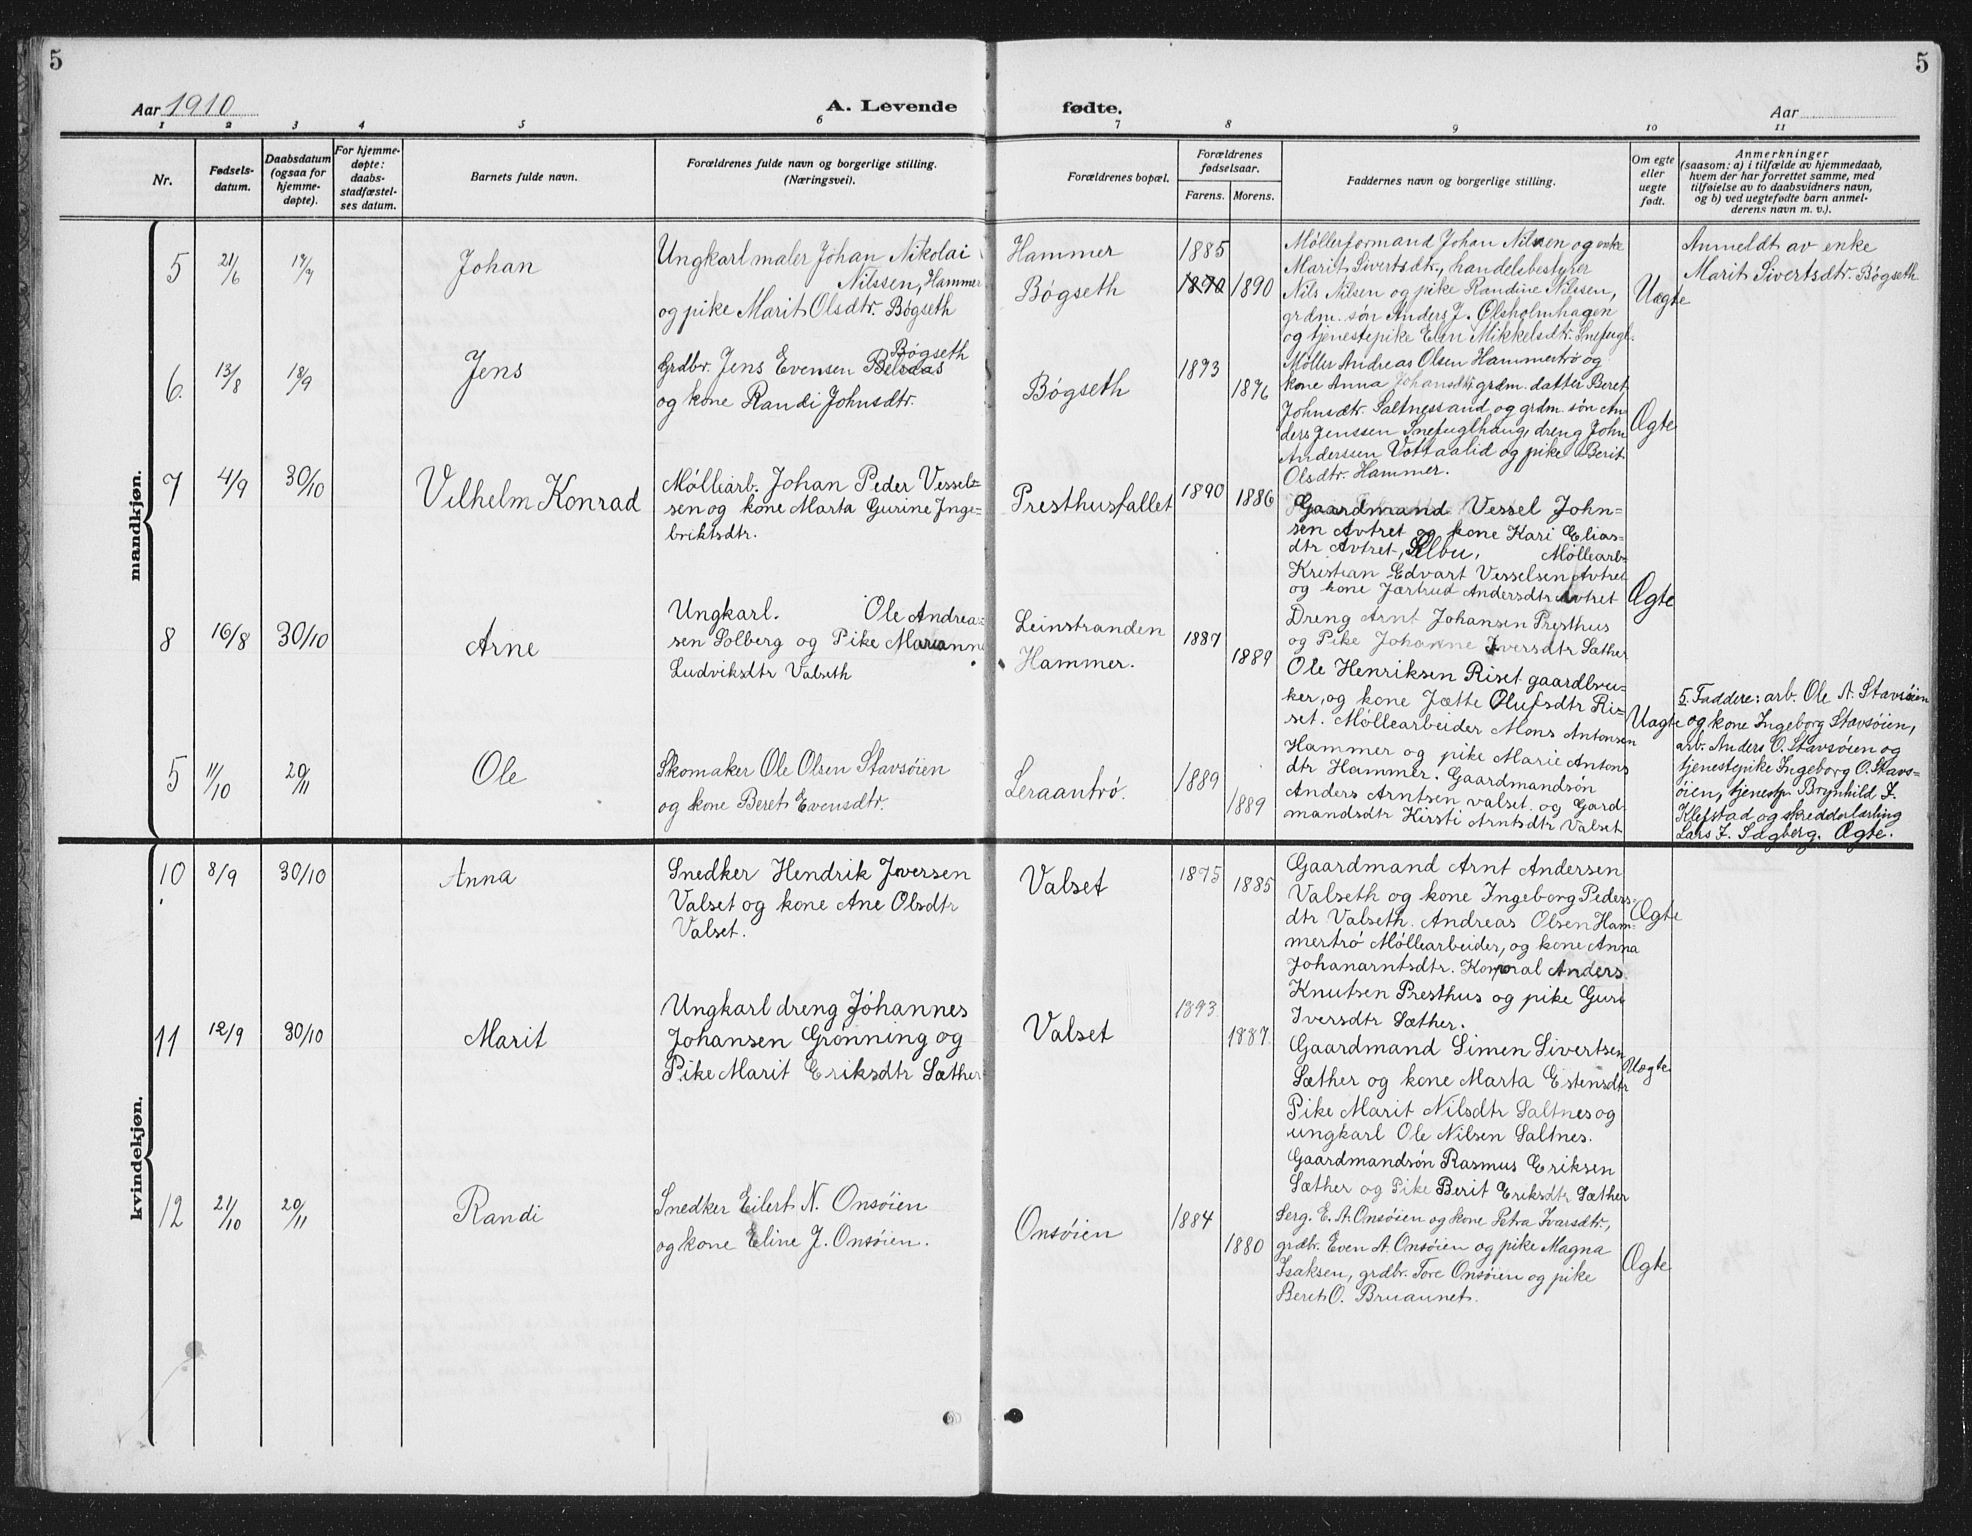 5
5
Aar 1910
A. Levende
fødte.
Aar
1 2 3 4 5 6 7 8 9 10 11
Nr.
Fødsels-
datum.
Daabsdatum
(ogsaa for
hjemme-
døpte).
For hjemme-
døpte:
daabs-
stadfæstel-
ses datum.
Barnets fulde navn.
Forældrenes fulde navn og borgerlige stilling.
(Næringsvei).
Forældrenes bopæl.
Forældrenes
fødselsaar.
Farens. Morens.
Faddernes navn og borgerlige stilling.
Om egte
eller
uegte
født.
Anmerkninger
(saasom: a) i tilfælde av hjemmedaab,
hvem der har forrettet samme, med
tilføielse av to daabsvidners navn,
og b) ved uegtefødte barn anmel-
derens navn m. v.).
mandkjøn.
5
21/6
17/7
Johan
Ungkarl maler Johan Nikolai
Nilssen, Hammer
og pike Marit Olsdtr. Bøgseth
Hammer
Bøgseth
1885
1890 1890
Møllerformand Johan Nilsen og enke
Marit Sivertsdtr., handelsbestyrer
Nils Nilsen og pike Randine Nilsen,
grdm. søn Anders J. Olsholmhagen
og tjenestepike Elin Mikkelsdtr. Snefugl.
Uægte
Anmeldt av enke
Marit Sivertsdtr. Bøgseth
6.
13/8
18/9
Jens
Bøgseth
Grdbr. Jens Evensen Belsaas
og kone Randi Johnsdtr.
Bøgseth
1893
1896
Møller Andreas Olsen Hammertrø og
kone Anna Johansdtr., grdm. datter Beret
Johnsdtr. Saltnessand og grdm. søn An-
ders Jenssen Snefuglhaug, dreng John
Anderssen Vottaalid og pike Berit
Olsdtr. Hammer.
Ægte
7
4/9
30/10
Vilhelm Konrad
Mølliarb. Johan Peder Vessel-
sen og kone Marta Gurine Inge-
briktsdtr.
Presthusfallet
1890
1886
Gaardmand Vessel John-
sen Avtret og kone Kari Elias-
dtr Avtret, Selbu, Møllearb-
Kristian Edvart Vesselsen Avtret
og kone Jartrud Andersdtr Avtret
Dreng Arnt Johansen Presthus
og Pike Johanne Iversdtr Sæther
Ægte
8
16/8
30/10
Arne
Ungkarl. Ole Andrea-
sen Solberg og Pike Marianne
Ludviksdtr Valseth
Leinstranden
Hammer.
1887
1889
Ole Henriksen Riset gaardbru-
ker, og kone Jætte Olufsdtr Ri-
set. Møllearbeider Mons Antonsen
Hammer og pike Marie Antons
dtr Hammer. Gaardmandsøn
Anders Arntsen valset. og Gard-
mandsdtr Kirsti Arntsdtr Valset
Uægte
5
11/10
20/11
Ole
Skomaker Ole Olsen Stavsøien
og kone Beret Evensdtr.
Leraantrø.
1889
1889
5. Faddere: arb. Ole A. Stavsøien
og kone Ingeborg Stavsøien,
arb. Anders O. Stavsøien og
tjenestepike Ingeborg O. Stavs-
øien, tjenestp. Brynhild J.
Klefstad og skrædderlærling
Lars J. Sagberg. Ægte.
kvindekjøn.
10
8/9
30/10
Anna
Snedker Hendrik Iversen
Valset og kone Ane Olsdtr
Valset.
Valset
1875
1885
Gaardmand Arnt Andersen
Valseth og kone Ingeborg Peders-
dtr Valseth. Andreas Olsen Ham-
mertrø Møllearbeider, og kone Anna
Johanarntsdtr. Korporal Anders
Knutsen Presthus og pike Guri
Iversdtr Sæther.
Ægte
11
12/9
30/10
Marit
Ungkarl dreng Johannes
Johansen Grønning og
Pike Marit Eriksdtr Sæther
Valset
1893
1887
Gaardmand Simen Sivertsen
Sæther og kone Marta Estensdtr
Pike Marit Nilsdtr Saltnes og
ungkarl Ole Nilsen Saltnes.
Gaardmandsøn Rasmus Eriksen
Sæther og Pike Berit Eriksdtr Sæther
Uægte
12
21/10
20/11
Randi
Snedker Eilert N. Onsøien
og kone Eline J. Onsøien.
Onsøien
1884
1880
Serg. E. A. Onsøien og kone Petra Ivarsdtr.,
grdbr. Even A. Onsøien og pike Magna
Isaksen, grdbr. Tore Onsøien og pike
Beret O. Bruaunet.
Ægte